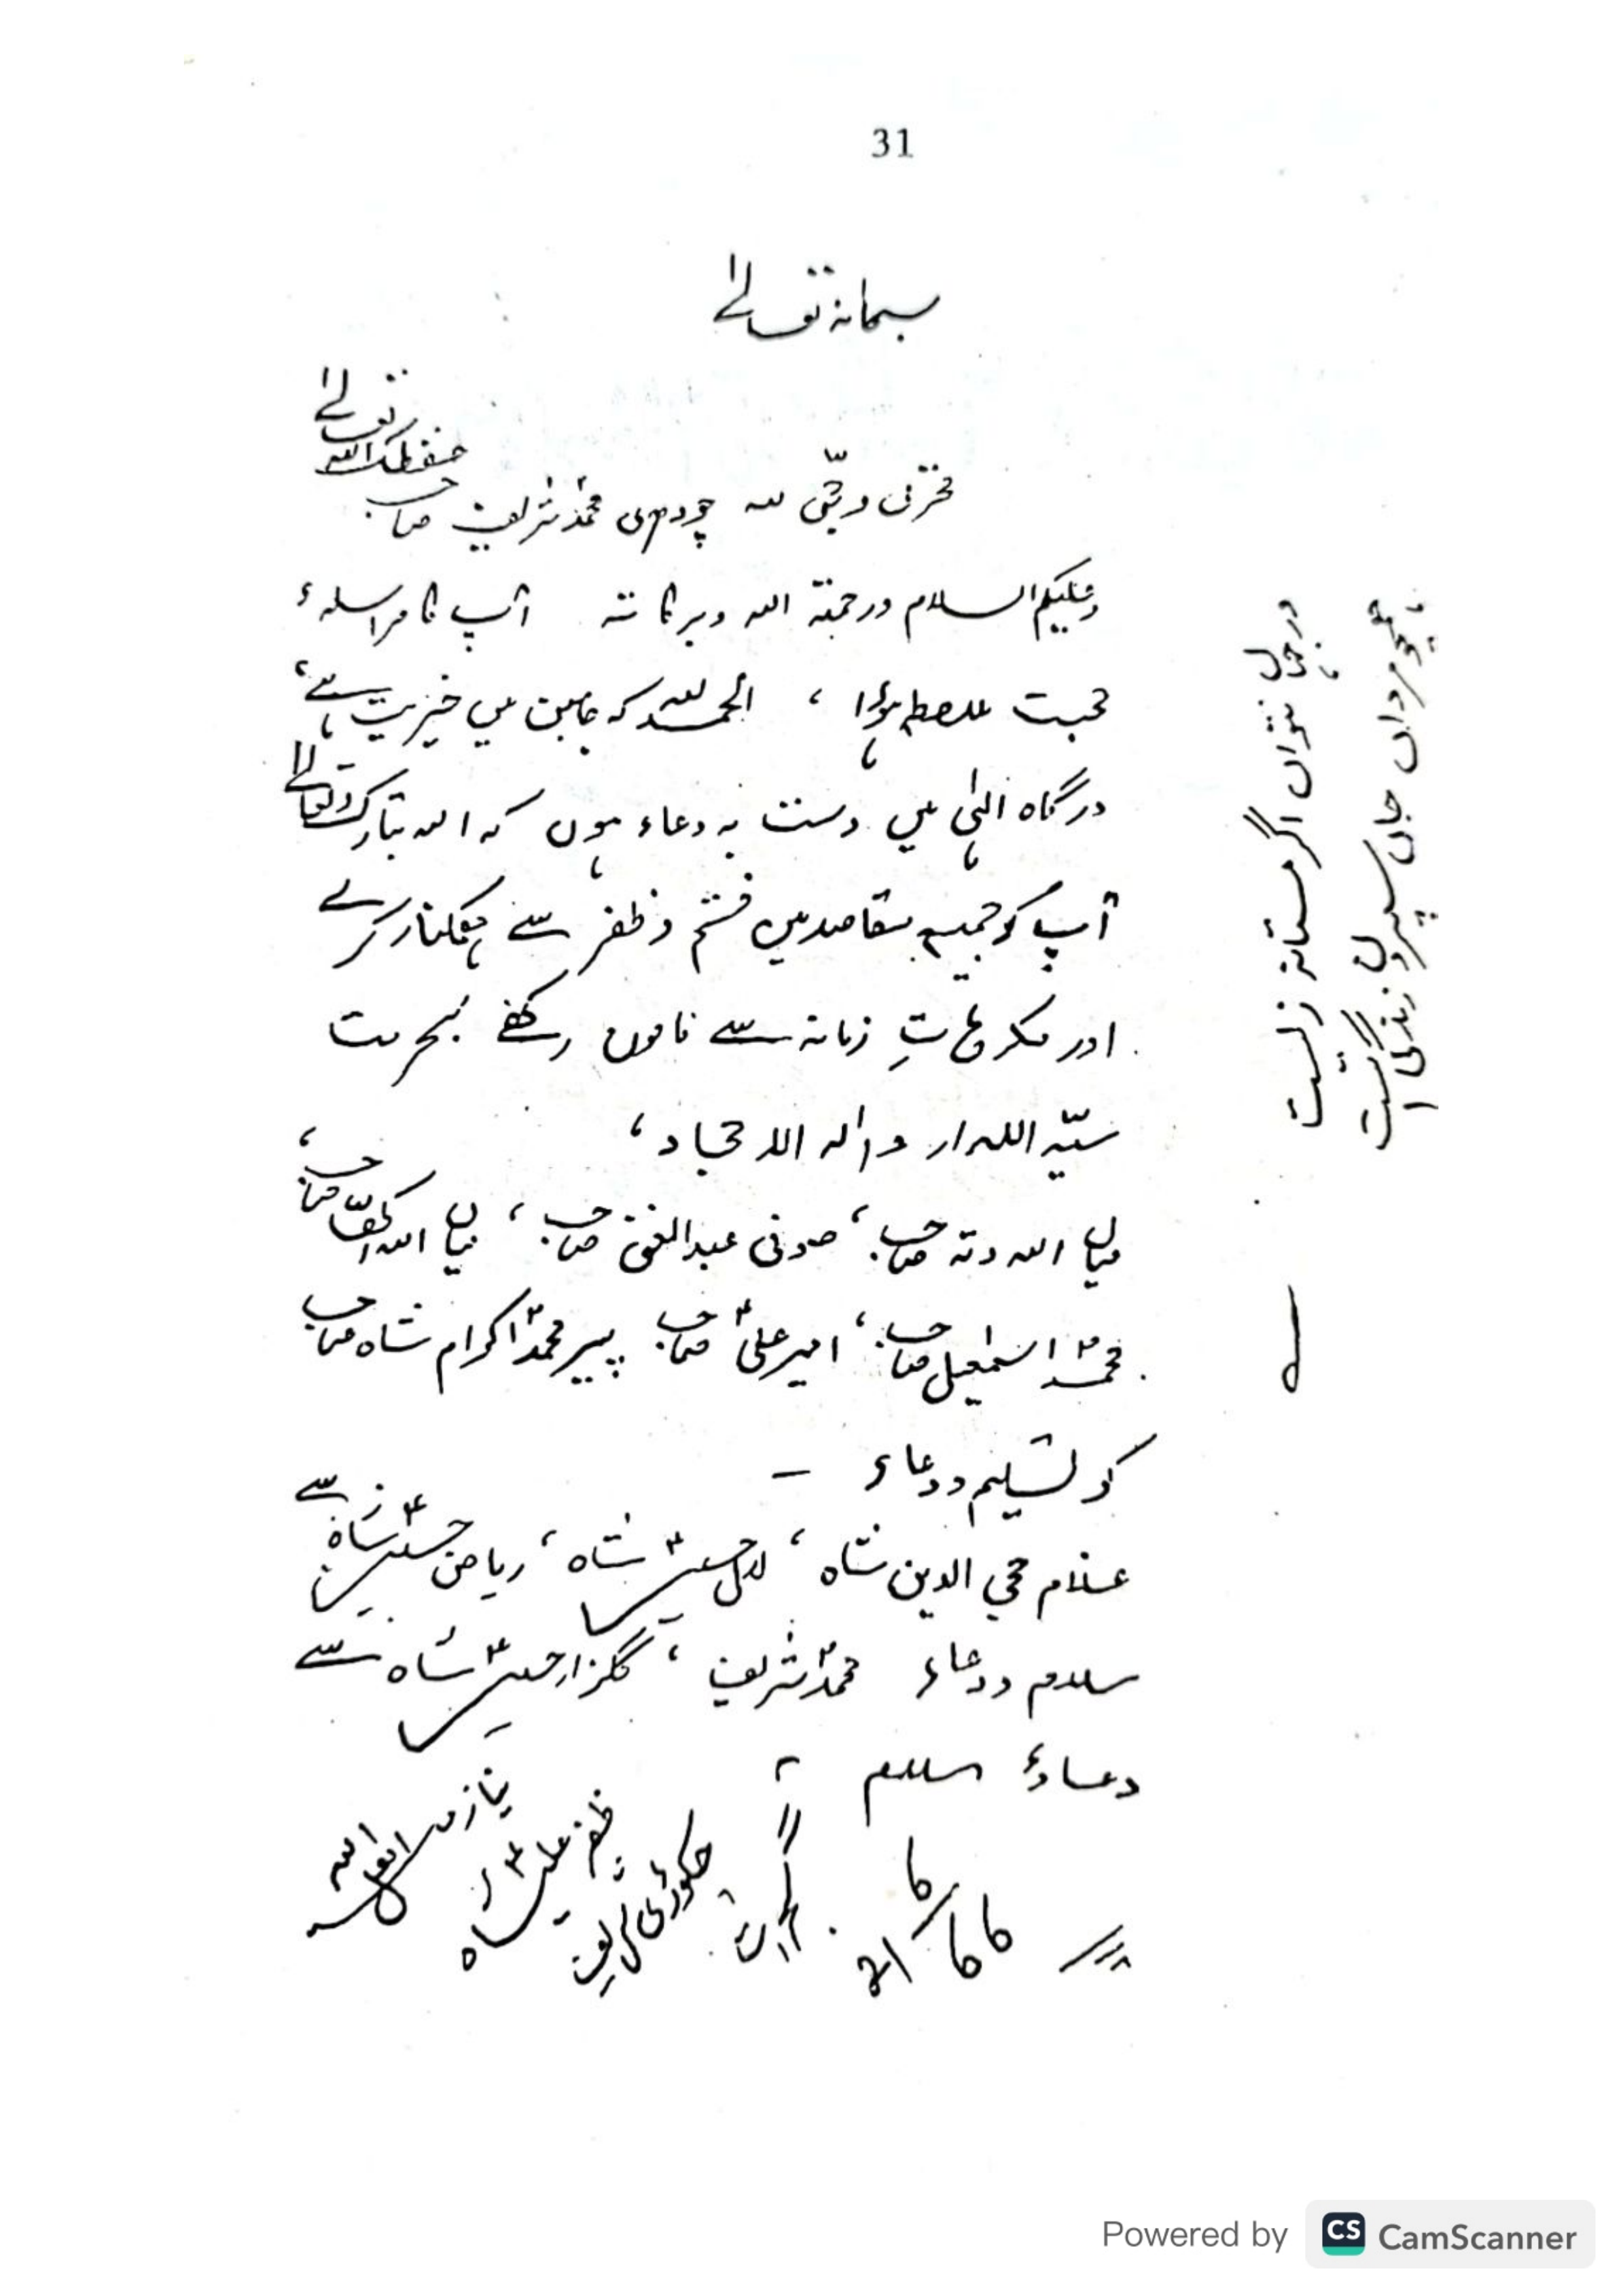 31
سبحانہ تعالےٰ
مخزنی و محبّی للہ چودھری محمد شریف صاحب حفظک اللہ تعالےٰ
وعلیکم السلام ورحمۃ اللہ وبرکاتہ آپ کا مراسلۂ
محبت ملاحظہ ہؤا ، الحمدللہ کہ جانبین میں خیریت ہے،
درگاہ الٰہی میں دست بہ دعاء ہوں کہ اللہ تبارک وتعالےٰ
آپ کو جمیع مقاصد میں فتح و ظفر سے ہمکنار کرے
اور مکروہاتِ زمانہ سے مامون رکھے بحرمت
سیّد الابرار وآلہ الامجاد ،
میاں اللہ دتہ صاحب، صوفی عبدالغنی صاحب ، میاں اللہ صاحب،
محمد اسمٰعیل صاحب، امیر علی صاحب پیر محمد اکرام شاہ صاحب
کو تسلیم و دعاء -
غلام محی الدین شاہ ، لال حسین شاہ ، ریاض حسین شاہ سے
سلام و دعاء محمد شریف ، گلزار حسین شاہ سے
دعاء و سلام
نیاز
ظفر علی شاہ
چکوڑی شریف
گجرات
21/6 66
در جہاں نتواں اگر مستانہ زیست
ہمچو مرداں جاں سپردن زندگیست